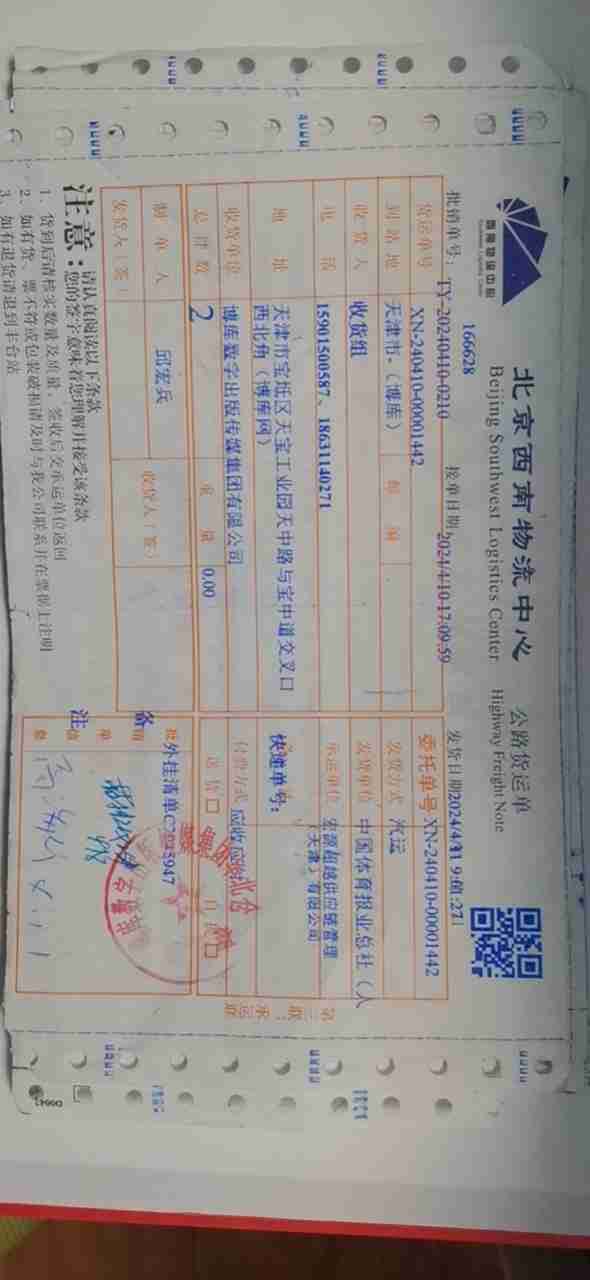 西南物流中心
北京西南物流中心
Beijing Southwest Logistics Center
公路货运单
Highway Freight Note
166628
批销单号: TY-20240410-0210
接单日期 2024/4/10 17:09:59
发货日期 2024/4/11
货运单号 XN-240410-00001442
委托单号 XN-240410-00001442
到站地 天津市-（博库） 邮编
发货方式 汽运
收货人 收货组
发货单位 中国体育报业总社（人
电话 15901500587、18631140271
承运单位 宏源超越供应链管理
（天津）有限公司
地址 天津市宝坻区天宝工业园天中路与宝中道交叉口
西北角（博库网）
快递单号:
收货单位 博库数字出版传媒集团有限公司
付款方式 应收应付
总件数 2 重量 0.00
送货 □ 自提 □
制单人 邱宏兵 收货人（签）
发货人（签）
备注
批销单信息
外挂清单
第三联：承运联
注意：
请认真阅读以下条款
您的签字意味着您理解并接受该条款
1、货到后请核实数量及质量，签收后交承运单位返回
2、如有货、票不符或包装破损请及时与我公司联系并在票据上注明
3、如有退货请退到丰台站